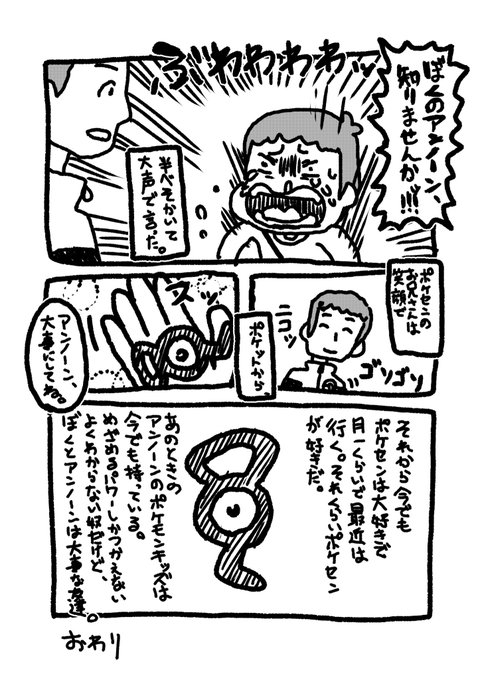 ぼくのアンノーン、
知りませんか゛!!!
ぶわわわわッ
半べそかいて
大声で言った。
ポケセンの
お兄さんは
笑顔で
ニコッ
ゴソゴソ
ポケットから、
スッ
アンノーン、
大事にしてね。
それから今でも
ポケセンは大好きで
月一くらいで最近は
行く。それくらいポケセン
が好きだ。
あのときの
アンノーンのポケモンキッズは
今でも持っている。
めざめるパワーしかつかえない
よくわからない奴だけど、
ぼくとアンノーンは大事な友達。
おわり